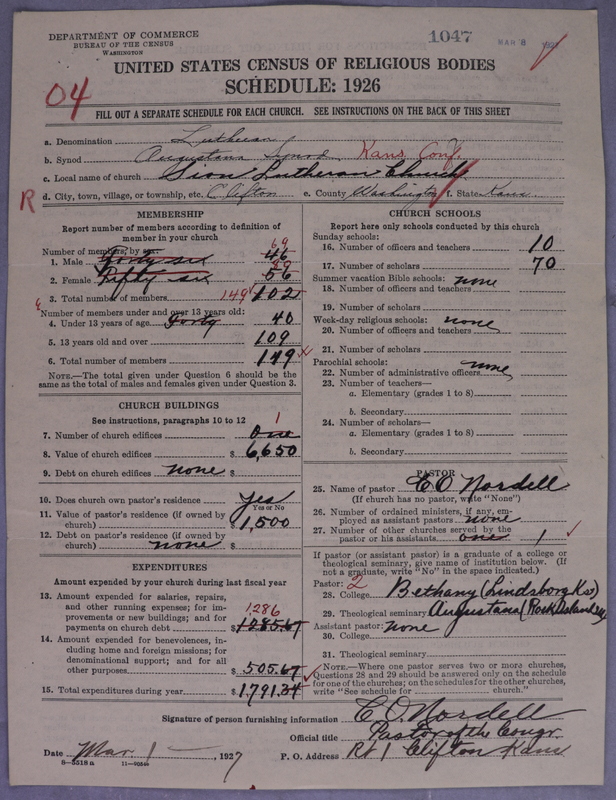 DEPARTMENT OF COMMERCE
BUREAU OF THE CENSUS
WASHINGTON
1047
MAR 8 1927
UNITED STATES CENSUS OF RELIGIOUS BODIES
SCHEDULE: 1926
04
FILL OUT A SEPARATE SCHEDULE FOR EACH CHURCH. SEE INSTRUCTIONS ON THE BACK OF THIS SHEET
a. Denomination Lutheran
b. Synod Augustana Synod Kans. Conf.
c. Local name of church Sion Lutheran Church
R d. City, town, village, or township, etc. Clifton e. County Washington f. State Kans
MEMBERSHIP
Report number of members according to definition of
member in your church
Number of members, by sex: 69
1. Male Forty six 46
2. Female Fifty six 56
3. Total number of members 149 102
Number of members under and over 13 years old:
4. Under 13 years of age Forty 40
5. 13 years old and over 109
6. Total number of members 149
NOTE.—The total given under Question 6 should be the
same as the total of males and females given under Question 3.
CHURCH BUILDINGS
See instructions, paragraphs 10 to 12
7. Number of church edifices One 1
8. Value of church edifices $ 6,650
9. Debt on church edifices none $
10. Does church own pastor's residence Yes
Yes or No
11. Value of pastor's residence (if owned by
church) $ 1,500
12. Debt on pastor's residence (if owned by
church) none $
EXPENDITURES
Amount expended by your church during last fiscal year
13. Amount expended for salaries, repairs,
and other running expenses; for im-
provements or new buildings; and for 1286
payments on church debt $ 1285.67
14. Amount expended for benevolences, in-
cluding home and foreign missions; for
denominational support; and for all
other purposes $ 505.67
15. Total expenditures during year $ 1791.34
CHURCH SCHOOLS
Report here only schools conducted by this church
Sunday schools:
16. Number of officers and teachers 10
17. Number of scholars 70
Summer vacation Bible schools: none
18. Number of officers and teachers
19. Number of scholars
Week-day religious schools: none
20. Number of officers and teachers
21. Number of scholars
Parochial schools: none
22. Number of administrative officers
23. Number of teachers—
a. Elementary (grades 1 to 8)
b. Secondary
24. Number of scholars—
a. Elementary (grades 1 to 8)
b. Secondary
PASTOR
25. Name of pastor E O Nordell
(If church has no pastor, write "None")
26. Number of ordained ministers, if any, em-
ployed as assistant pastors none
27. Number of other churches served by the
pastor or his assistants one 1
If pastor (or assistant pastor) is a graduate of a college or
theological seminary, give name of institution below. (If
not a graduate, write "No" in the space indicated.)
Pastor: 2
28. College Bethany (Lindsborg Ks)
29. Theological seminary Augustana (Rock Island Ill)
Assistant pastor: none
30. College
31. Theological seminary
NOTE.—Where one pastor serves two or more churches,
Questions 28 and 29 should be answered only on the schedule
for one of the churches; on the schedules for the other churches,
write "See schedule for church."
Signature of person furnishing information E. O. Nordell
Official title Pastor of the Congr.
Date Mar 1 — , 1927 P. O. Address Rt 1 Clifton Kans
8—5518 a 11—9054